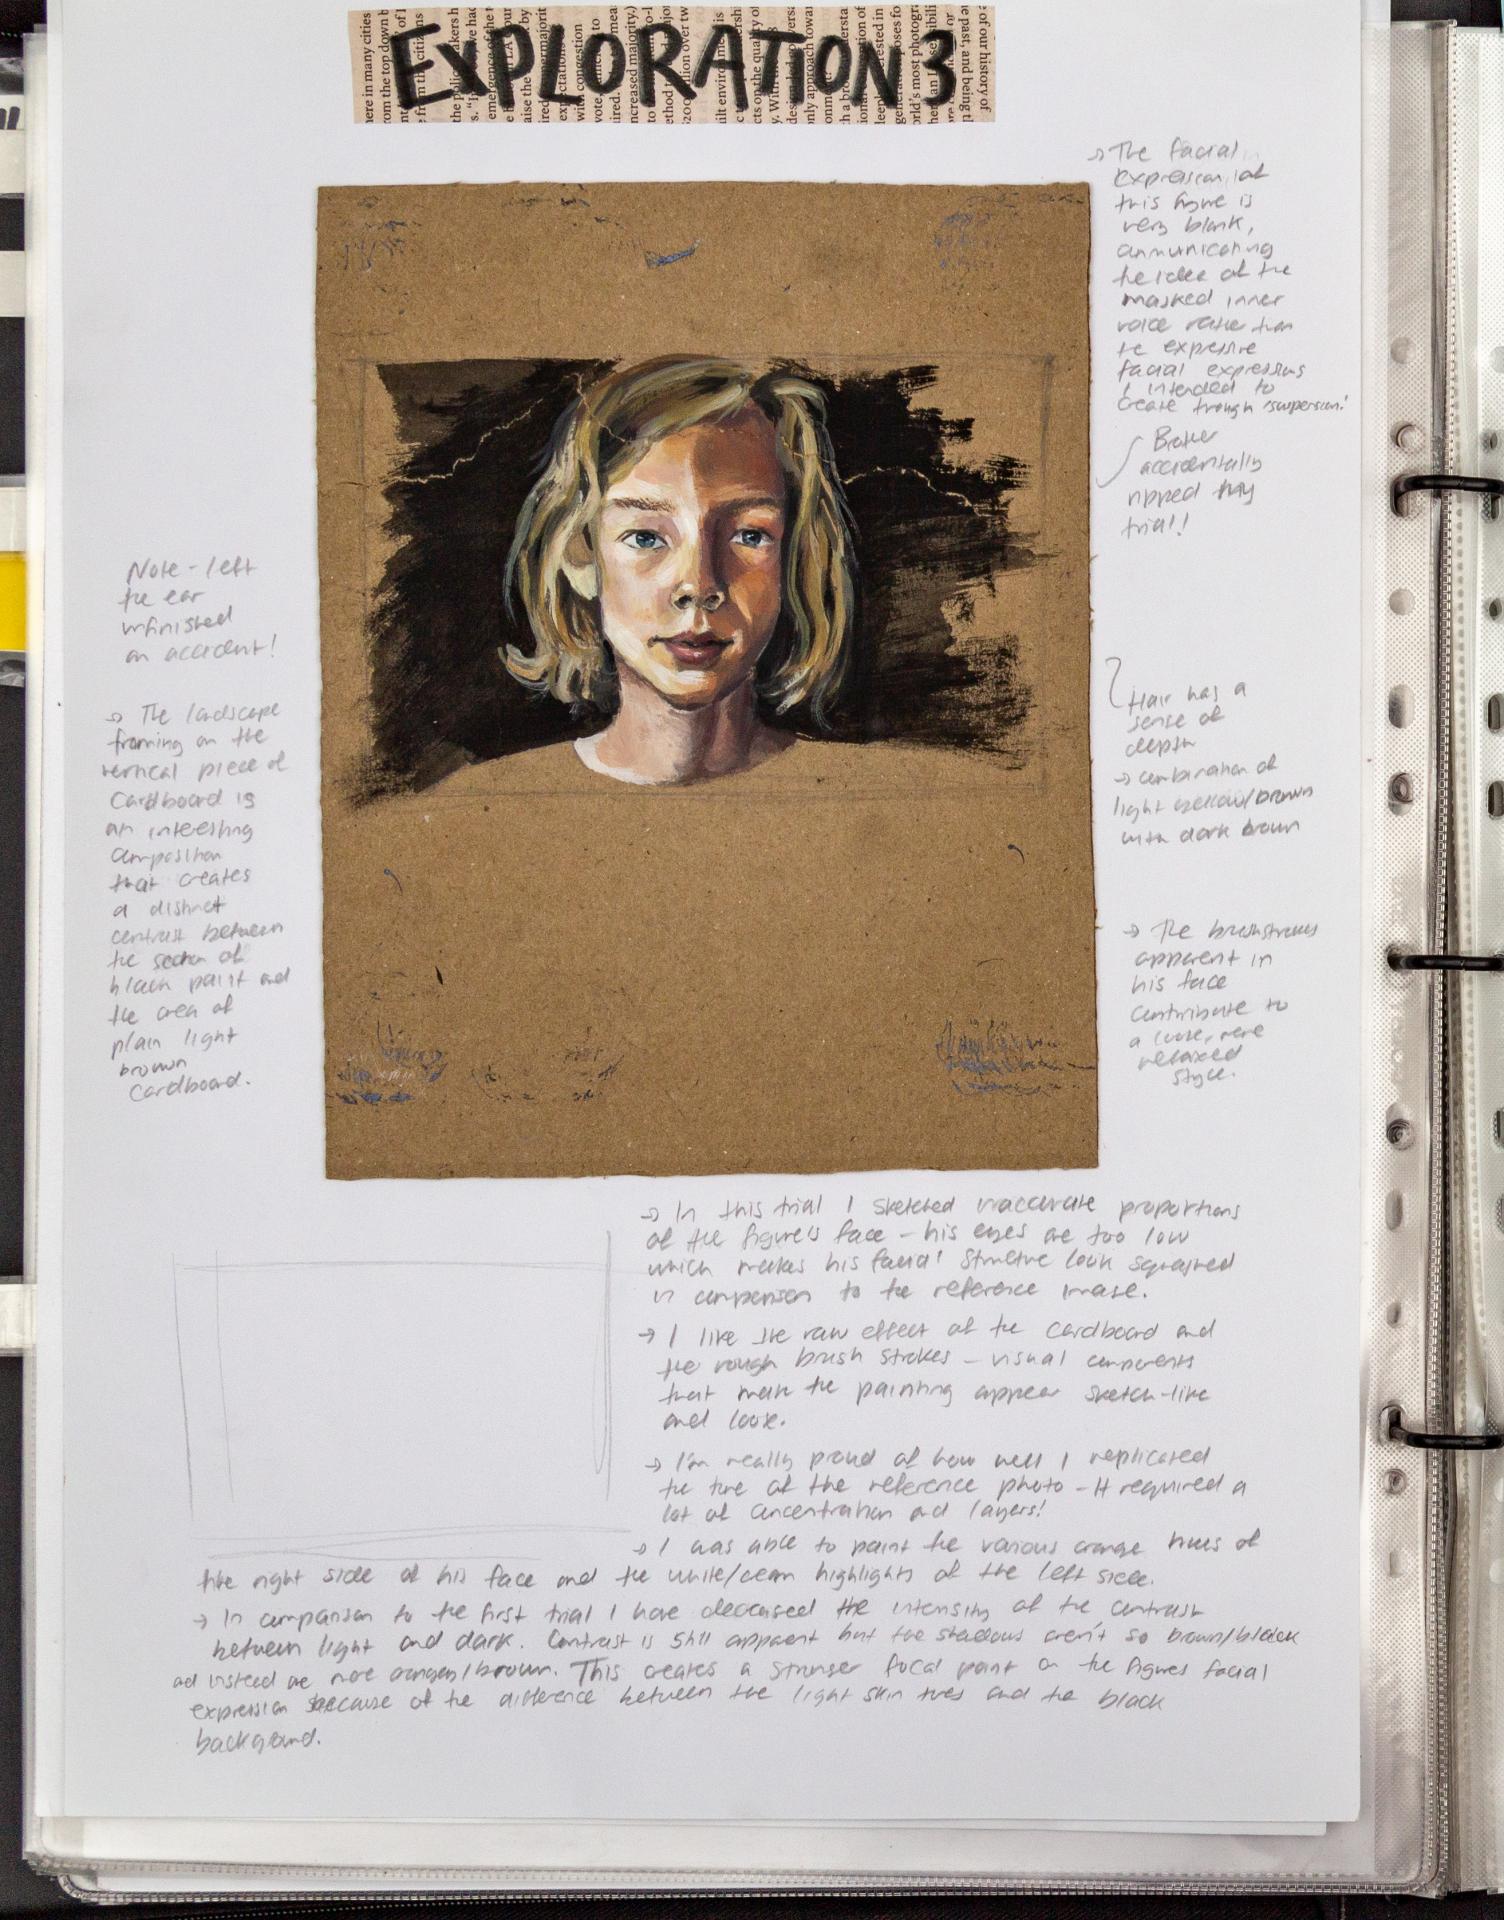 EXPLORATION 3
→ The facial
expression of
this figure is
very blank,
communicating
the idea of the
masked inner
voice rather than
the expressive
facial expressions
I intended to
create through
Brother
accidentally
ripped this
trial!
Note - left
the ear
unfinished
on accident!
→ The landscape
framing on the
vertical piece of
cardboard is
an interesting
composition
that creates
a distinct
contrast between
the section of
black paint and
the area of
plain light
brown
cardboard.
Hair has a
sense of
depth
→ combination of
light yellow/brown
with dark brown
→ The brushstrokes
apparent in
his face
contribute to
a loose, more
relaxed
style.
→ In this trial I sketched inaccurate proportions
of the figure's face - his eyes are too low
which makes his facial structure look squashed
in comparison to the reference image.
→ I like the raw effect of the cardboard and
the rough brush strokes - visual components
that make the painting appear sketch-like
and loose.
→ I'm really proud of how well I replicated
the tone of the reference photo - It required a
lot of concentration and layers!
→ I was able to paint the various orange hues of
the right side of his face and the white/cream highlights of the left side.
→ In comparison to the first trial I have decreased the intensity of the contrast
between light and dark. Contrast is still apparent but the shadows aren't so brown/black
and instead are more orangey/brown. This creates a stronger focal point on the figures facial
expression because of the difference between the light skin tones and the black
background.